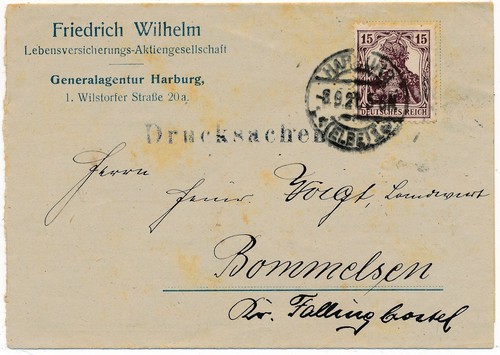 Friedrich Wilhelm
Lebensversicherungs-Aktiengesellschaft
Generalagentur Harburg,
1. Wilstorfer Straße 20a.
15 15
DEUTSCHES REICH
HARBURG
(ELBE) 1
Drucksachen
Herrn
Heinr. Voigt, Landwirt
Bommelsen
Kr. Fallingbostel